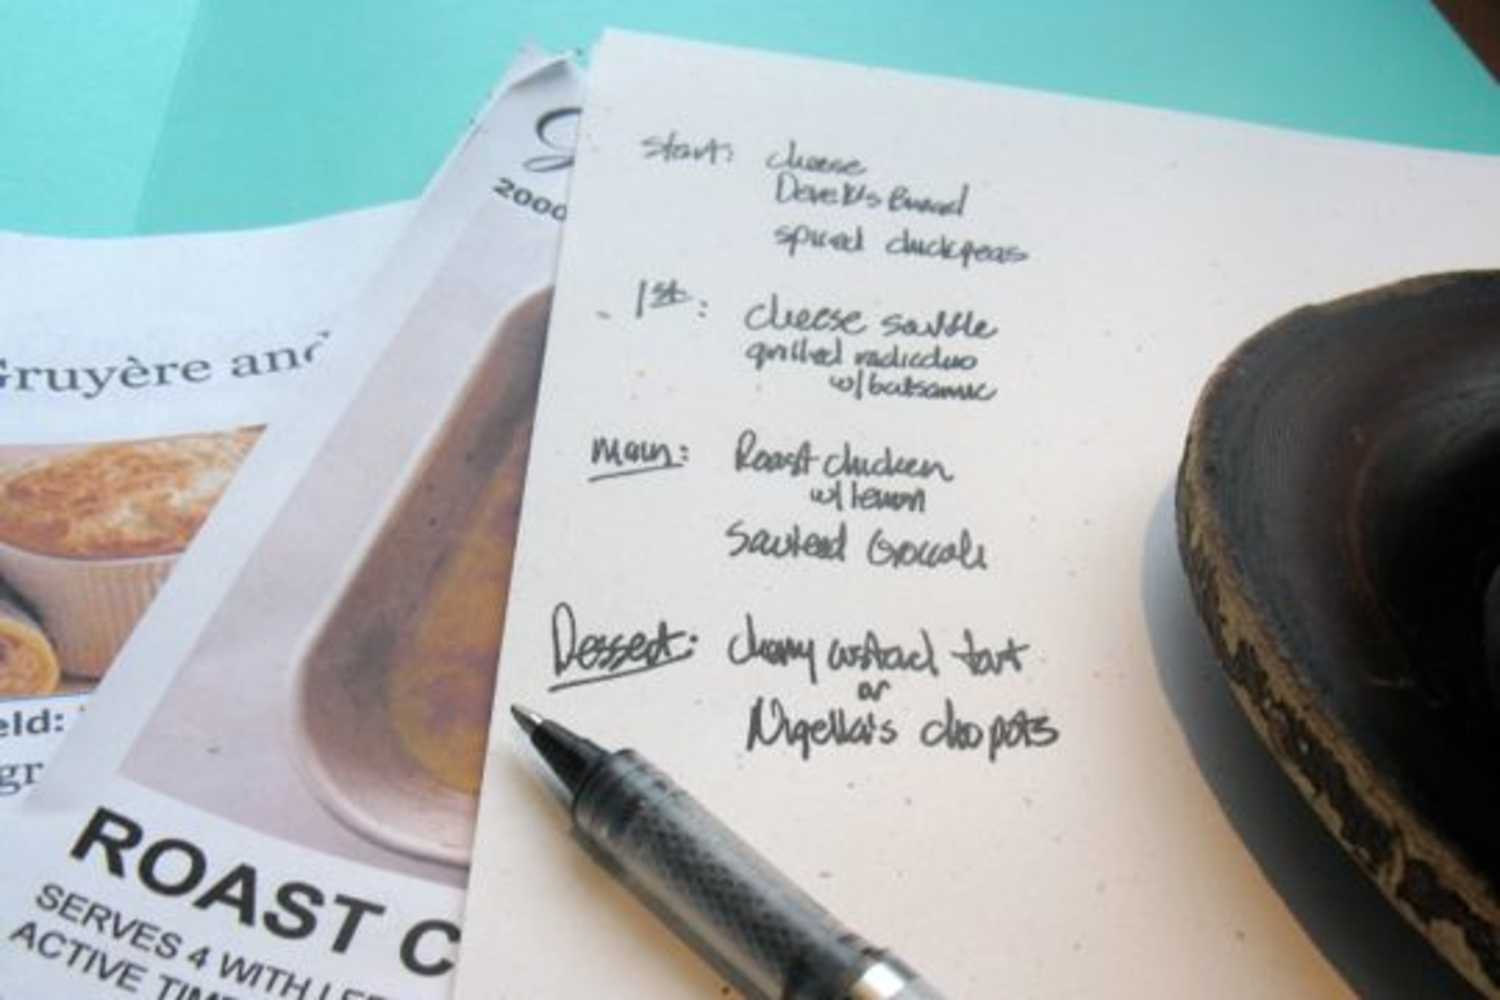 start: cheese
Derek's Bread
spiced chickpeas
1st: cheese souffle
grilled radicchio
w/balsamic
main: Roast chicken
w/ lemon
Sauteed broccoli
Dessert: cherry custard tart
or
Nigella's choc pots
2000
Gruyère and
eld:
gr
ROAST C
SERVES 4 WITH LEF
ACTIVE TIM